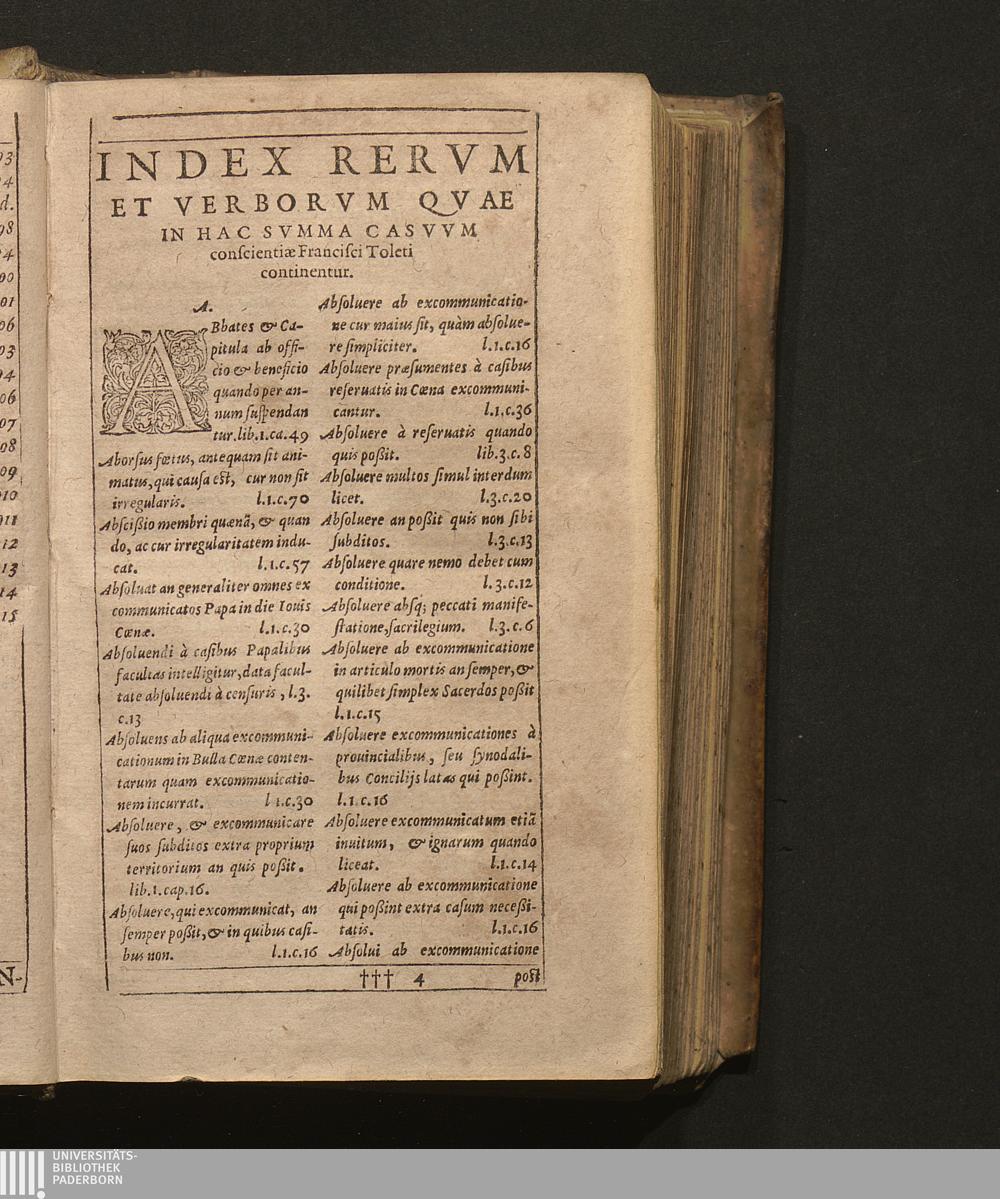 93
94
d.
98
94
00
01
06
03
04
06
07
08
09
010
011
12
13
14
15
N-
INDEX RERVM
ET VERBORVM QVAE
IN HAC SVMMA CASVVM
conſcientiæ Franciſci Toleti
continentur.
A.
ABbates & Ca-
pitula ab offi-
cio & beneficio
quando per an-
num ſuſpendan
tur. lib.1.ca.49
Aborſus fœtus, antequam ſit ani-
matus, qui cauſa eſt, cur non ſit
irregularis. l.1.c.70
Abſcißio membri quænã, & quan
do, ac cur irregularitatem indu-
cat. l.1.c.57
Abſoluat an generaliter omnes ex
communicatos Papa in die Iouis
Cœnæ. l.1.c.30
Abſoluendi à caſibus Papalibus
facultas intelligitur, data facul-
tate abſoluendi à cenſuris, l.3.
c.13
Abſoluens ab aliqua excommuni-
cationum in Bulla Cœnæ conten-
tarum quam excommunicatio-
nem incurrat. l 1.c.30
Abſoluere, & excommunicare
ſuos ſubditos extra proprium
territorium an quis poßit.
lib.1.cap.16.
Abſoluere, qui excommunicat, an
ſemper poßit, & in quibus caſi-
bus non. l.1.c.16
Abſoluere ab excommunicatio-
ne cur maius ſit, quàm abſolue-
re ſimpliciter. l.1.c.16
Abſoluere præſumentes à caſibus
reſeruatis in Cœna excommuni-
cantur. l.1.c.36
Abſoluere à reſeruatis quando
quis poßit. lib.3.c.8
Abſoluere multos ſimul interdum
licet. l.3.c.20
Abſoluere an poßit quis non ſibi
ſubditos. l.3.c.13
Abſoluere quare nemo debet cum
conditione. l.3.c.12
Abſoluere abſq; peccati manife-
ſtatione, ſacrilegium. l.3.c.6
Abſoluere ab excommunicatione
in articulo mortis an ſemper, &
quilibet ſimplex Sacerdos poßit
l.1.c.15
Abſoluere excommunicationes à
prouincialibus, ſeu ſynodali-
bus Concilijs latas qui poßint.
l.1.c.16
Abſoluere excommunicatum etiã
inuitum, & ignarum quando
liceat. l.1.c.14
Abſoluere ab excommunicatione
qui poßint extra caſum neceßi-
tatis. l.1.c.16
Abſolui ab excommunicatione
††† 4 poſt
UNIVERSITÄTS-
BIBLIOTHEK
PADERBORN